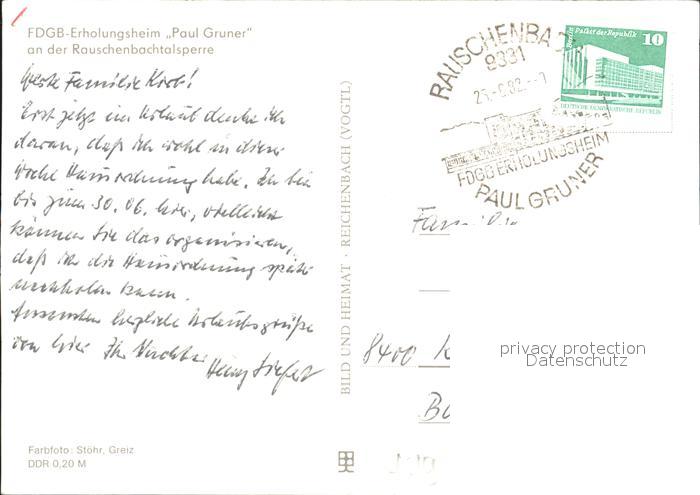 FDGB-Erholungsheim „Paul Gruner“
an der Rauschenbachtalsperre
Werte Familie
Erst jetzt im Urlaub denke ich
daran, daß ich wohl in dieser
Woche Hausordnung habe. Ich bin
bis zum 30. 06. hier, vielleicht
können Sie das organisieren,
daß ich die Hausordnung später
nachholen kann.
Ansonsten herzliche Urlaubsgrüße
von hier Ihr Nachbar
Farbfoto: Stöhr, Greiz
DDR 0,20 M
BILD UND HEIMAT · REICHENBACH (VOGTL)
RAUSCHENBACH
9331
FDGB ERHOLUNGSHEIM
PAUL GRUNER
Berlin Palast der Republik
10
DEUTSCHE DEMOKRATISCHE REPUBLIK
8400 K
privacy protection
Datenschutz